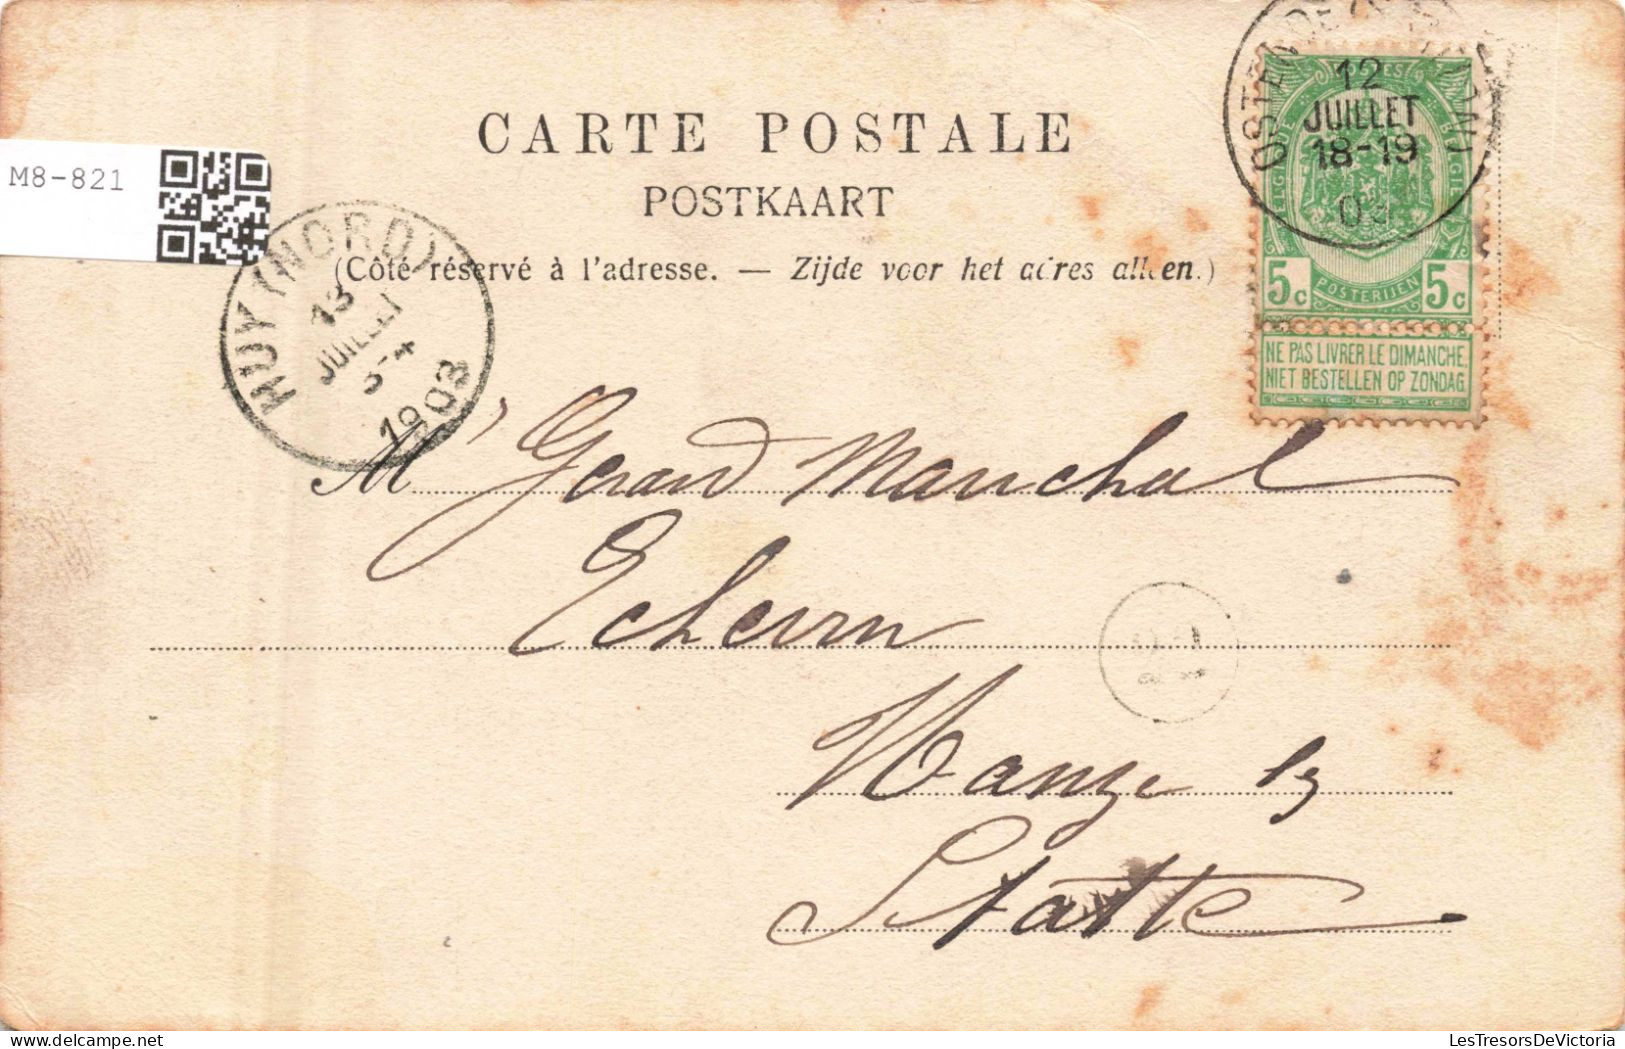 M8-821
CARTE POSTALE
POSTKAART
(Côté réservé à l'adresse. — Zijde voor het adres alleen.)
OSTENDE
12
JUILLET
18-19
03
POSTES
BELGIQUE
BELGIE
5c
POSTERIJEN
5c
NE PAS LIVRER LE DIMANCHE
NIET BESTELLEN OP ZONDAG
HUY (NORD)
13
JUILLET
1903
M' Gerard Marichal
Echevin
Wanze lz
Statte
LesTresorsDeVictoria.com